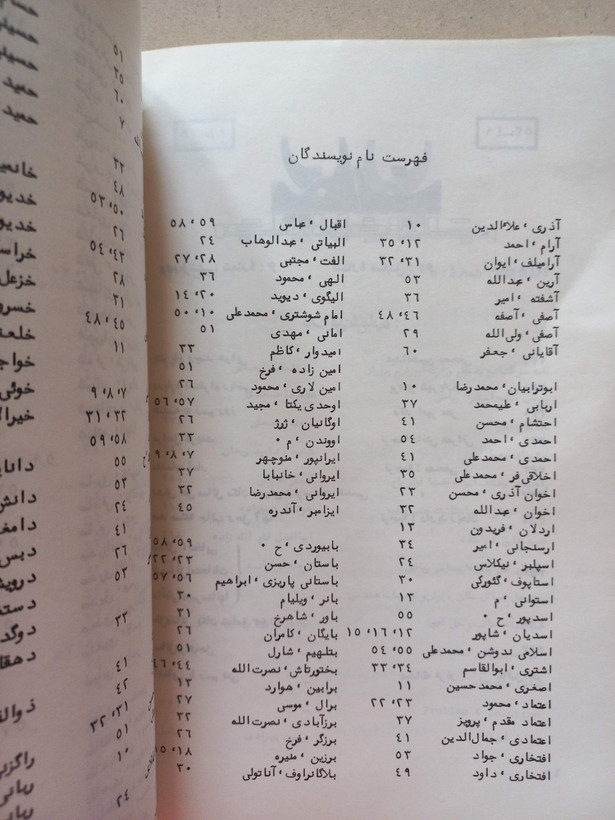 فهرست نام نویسندگان
آذری، علاءالدین ۱۰
آرام، احمد ۱۲، ۳۵
آرامیلف، ایوان ۳۱، ۳۲
آرین، عبدالله ۵۳
آشفته، امیر ۳۶
آصفی، آصفه ۴۶، ۴۸
آصفی، ولی‌الله ۲۹
آقایانی، جعفر ۶۰
ابوترابیان، محمدرضا ۱۰
اربابی، علیمحمد ۳۷
احتشام، محسن ۴۱
احمدی، احمد ۵۴
احمدی، محمدعلی ۴۱
اخلاقی‌فر، محمدعلی ۳۵
اخوان آذری، محسن ۲۳
اخوان، عبدالله ۳۲
اردلان، فریدون ۱۳
ارسنجانی، امیر ۳۴
اسپلبر، نیکلاس ۲۴
استاپوف، گئورگی ۳۰
استوانی، م ۱۳
اسدپور، ح ۵۵
اسدیان، شاپور ۱۲، ۱۶، ۱۵
اسلامی ندوشن، محمدعلی ۵۵، ۵۴
اشتری، ابوالقاسم ۳۴، ۳۳
اصغری، محمدحسین ۱۱
اعتماد، محمود ۲۳، ۲۲
اعتماد مقدم، پرویز ۳۷
اعتمادی، جمال‌الدین ۴۱
افتخاری، جواد ۵۳
افتخاری، داود ۴۹
اقبال، عباس ۵۹، ۵۸
البیاتی، عبدالوهاب ۲۴
الفت، مجتبی ۲۸، ۲۷
الهی، محمود ۳۶
الیگوی، دیوید ۲۰، ۱۴
امام شوشتری، محمدعلی ۱۰، ۵۰
امانی، مهدی ۵۱
امیدوار، کاظم ۳۳
امین زاده، فرخ ۵۱
امین لاری، محمود ۲۶
اوحدی یکتا، مجید ۵۷، ۵۶
اوگانیان، ژرژ ۲۶
اووندن، م۰ ۳۳
ایرانپور، منوچهر ۷، ۸، ۹
ایروانی، خانبابا ۳۷
ایروانی، محمدرضا ۳۲
ایزامبر، آندره ۴۵
بابیوردی، ح۰ ۵۹، ۵۸
باستان، حسن ۲۳، ۲۲
باستانی پاریزی، ابراهیم ۵۶، ۵۷
باثر، ویلیام ۳۰
باور، شاهرخ ۳۱
بایگان، کامران ۲۶
بتلهیم، شارل ۵۱
بختورتاش، نصرت‌الله ۴۴، ۴۶
برابین، هوارد ۱۳
برال، موسی ۲۷
برزآبادی، نصرت‌الله ۳۲
برزگر، فرخ ۲۶
برزین، منیره ۱۸، ۱۵
بلاگانراوف، آناتولی ۳۰
۵۱
۳۵
۶۰
۷
۳۲
۴۸
۵۰، ۵۳
۲۶
۴۳، ۵۴
۲۸
۳۱
۴۵، ۴۸
۱۱
۷، ۸، ۹
۳۲، ۳۱
۵۸، ۵۹
۵۵
۵۳
۲۴
۴۱
۲۶
۵۲
۳۳
۴۱
۴۲
۳۱، ۳۲
۵۱
۱۰
۲۴